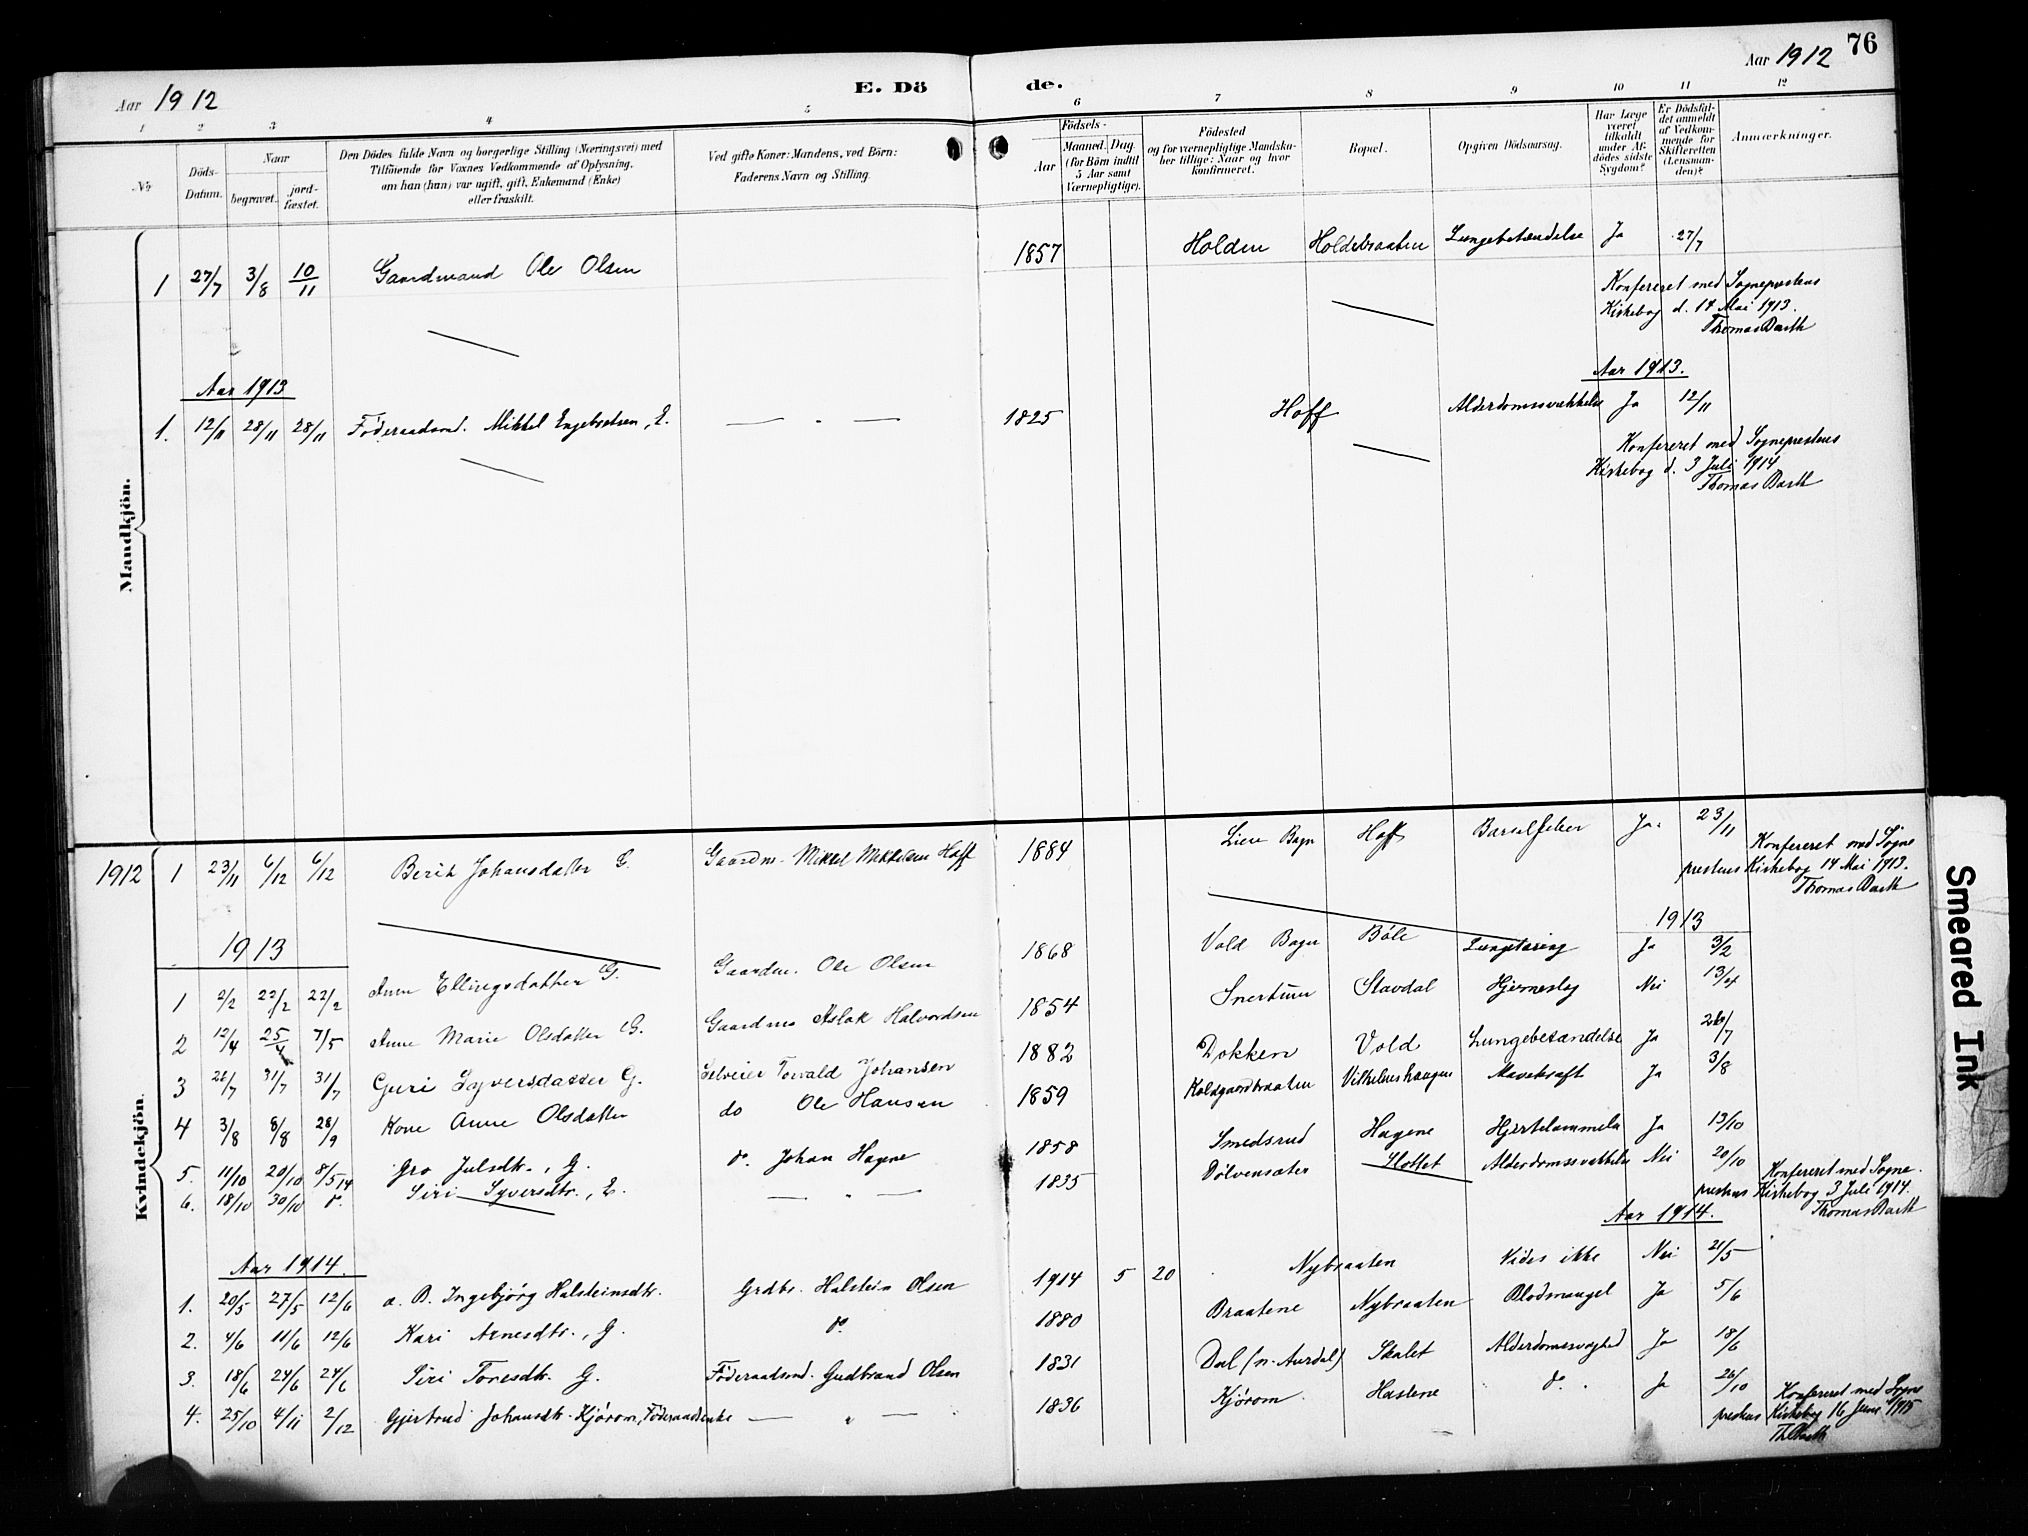 76
Aar 1912 E. Dö de. Aar 1912
1 2 3 4 5 6 7 8 9 10 11 12
No
Döds-Datum.
Naar
begravet.
jord-fæstet.
Den Dödes fulde Navn og borgerlige Stilling (Næringsvei) med
Tilföiende for Voxnes Vedkommende af Oplysning,
om han (hun) var ugift, gift, Enkemand (Enke)
eller fraskilt.
Ved gifte Koner: Mandens, ved Börn:
Faderens Navn og Stilling.
Födsels-
Aar
Maaned. Dag.
(for Börn indtil
5 Aar samt
Værnepligtige).
Födested
og for værnepligtige Mandska-
ber tillige: Naar og hvor
konfirmeret.
Bopæl.
Opgiven Dödsaarsag.
Har Læge
været
tilkaldt
under Af-
dödes sidste
Sygdom?
Er Dödsfal-
det anmeldt
af Vedkom-
mende for
Skifteretten
(Lensman-
den)?
Anmærkninger.
Mandkjön.
1 27/7 3/8 10/11 Gaardmand Ole Olsen 1857 Holden Holdebraaten Lungebetændelse Ja 27/7
Konfereret med Sogneprestens
Kirkebog d. 14 Mai 1913.
Thomas Barth
Aar 1913 Aar 1913.
1. 12/11 28/11 28/11 Föderaadsmd. Mikkel Engebretsen, E. — " — 1825 Hoff Alderdomssvækkelse Ja 12/11
Konfereret med Sogneprestens
Kirkebog d. 3 Juli 1914
Thomas Barth
Kvindekjön.
1912 1 23/11 6/12 6/12 Berit Johansdatter G. Gaardm. Mikkel Mikkelsen Hoff 1884 Lien Bagn Hoff Barselfeber Ja. 23/11
Konfereret med Sogne
prestens Kirkebog 14 Mai 1913.
Thomas Barth
1913 1913
1 2/2 22/2 22/2 Anne Ellingsdatter G. Gaardm. Ole Olsen 1868 Vold Bagn Böle Lungetæring Ja 3/2
2 12/4 25/4 7/5 Anne Marie Olsdatter G. Gaardm. Aslak Halvordsen 1854 Snertum Stavdal Hjerneslag Nei 13/4
3 22/7 31/7 31/7 Guri Syversdatter G. Selveier Torvald Johansen 1882 Dokken Vold Lungebetændelse Ja 26/7
4 3/8 8/8 28/9 Kone Anne Olsdatter do Ole Hansen 1859 Koldgaardbraaten Vilhelmshaugen Mavekræft Ja 3/8
5. 11/10 20/10 8/5 14 Gro Julsdtr., G. do. Johan Hagene 1858 Smedsrud Hagene Hjertelammelse Ja 13/10
6. 18/10 30/10 do. Siri Syversdtr., E. — " — 1835 Dölvensæter Slottet Alderdomssvækkelse Nei 20/10
Konfereret med Sogne-
prestens Kirkebog 3 Juli 1914.
Thomas Barth
Aar 1914. Aar 1914.
1. 20/5 27/5 12/6 u. B. Ingebjörg Halsteinsdtr. Grdbr. Halstein Olsen 1914 5 20 Nybraaten Vides ikke Nei 21/5
2. 4/6 11/6 12/6 Kari Arnesdtr., G. do. 1880 Braatene Nybraaten Blodmangel Ja 5/6
3. 18/6 24/6 24/6 Siri Toresdtr. G. Föderaadsmd. Gudbrand Olsen 1831 Dal (n. Aurdal) Skalet Alderdomssvaghed Ja 18/6
4. 25/10 4/11 2/12 Gjertrud Johansdtr. Kjörom, Föderaadsenke — " — 1836 Kjörom Haslene do. Ja 26/10
Konfereret med Sogne
prestens Kirkebog 16 Juni 1915
Th. Barth
Smeared Ink